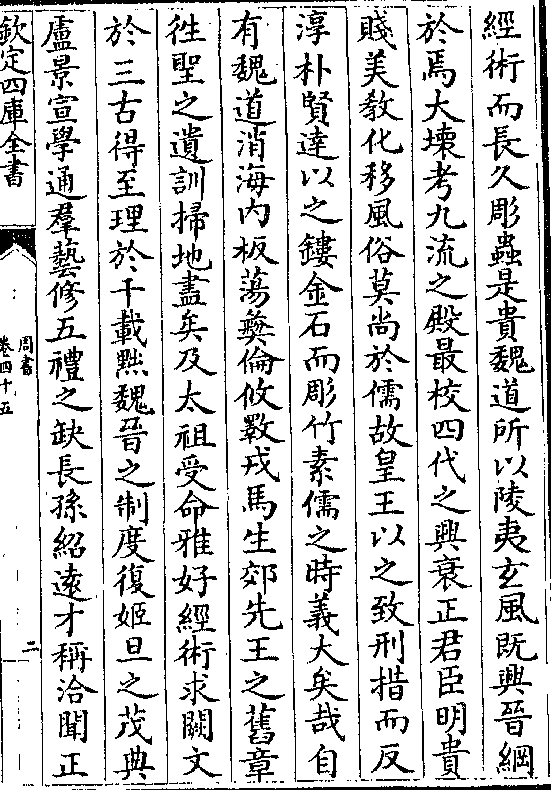 經術而長久彫蟲是貴魏道所以陵夷玄風既興晉綱
於焉大壊考九流之殿最校四代之興衰正君臣明貴
賤美教化移風俗莫尚於儒故皇王以之致刑措而反
淳朴賢達以之鏤金石而彫竹素儒之時義大矣哉自
有魏道消海内板蕩彝倫攸斁戎馬生郊先王之舊章
徃聖之遺訓掃地盡矣及太祖受命雅好經術求闕文
於三古得至理於千載黜魏晉之制度復姬旦之茂典
盧景宣學通羣藝修五禮之缺長孫紹遠才稱洽聞正
欽定四庫全書
周書
卷四十五
二